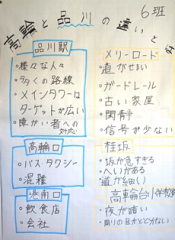 6班
高輪と品川の違いと
品川駅
・様々な人々
・多くの路線
・メインタワーは
ターゲットが広い
・障がい者への
高輪口
・バス タクシー
・混雑
港南口
・飲食店
・会社
メリーロード
・道がせまい
・ガードレール
・古い家屋
・閑静
・信号が少ない
桂坂
・坂が急すぎる
・へいがある
・道が細い
高輪台
・夜が暗い